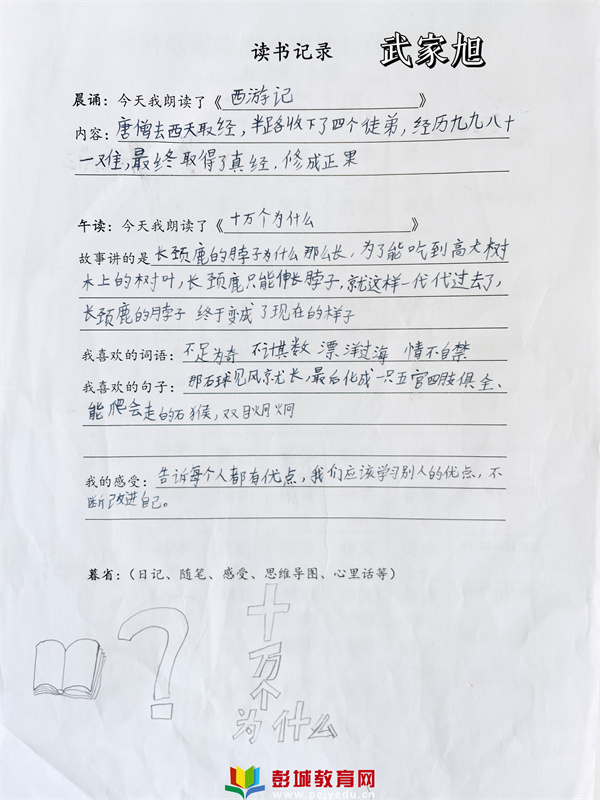 读书记录 武家旭
晨诵：今天我朗读了《 西游记 》
内容：唐僧去西天取经，半路收下了四个徒弟，经历九九八十
一难，最终取得了真经，修成正果
午读：今天我朗读了《 十万个为什么 》
故事讲的是长颈鹿的脖子为什么那么长，为了能吃到高大树
木上的树叶，长颈鹿只能伸长脖子，就这样一代代过去了，
长颈鹿的脖子终于变成了现在的样子
我喜欢的词语：不足为奇 不计其数 漂洋过海 情不自禁
我喜欢的句子：那石球见风就长，最后化成一只五官四肢俱全、
能爬会走的石猴，双目炯炯
我的感受：告诉每个人都有优点，我们应该学习别人的优点，不
断改进自己。
暮省：（日记、随笔、感受、思维导图、心里话等）
？
十
万
个
为什么
彭城教育网
www.pcjyedu.cn